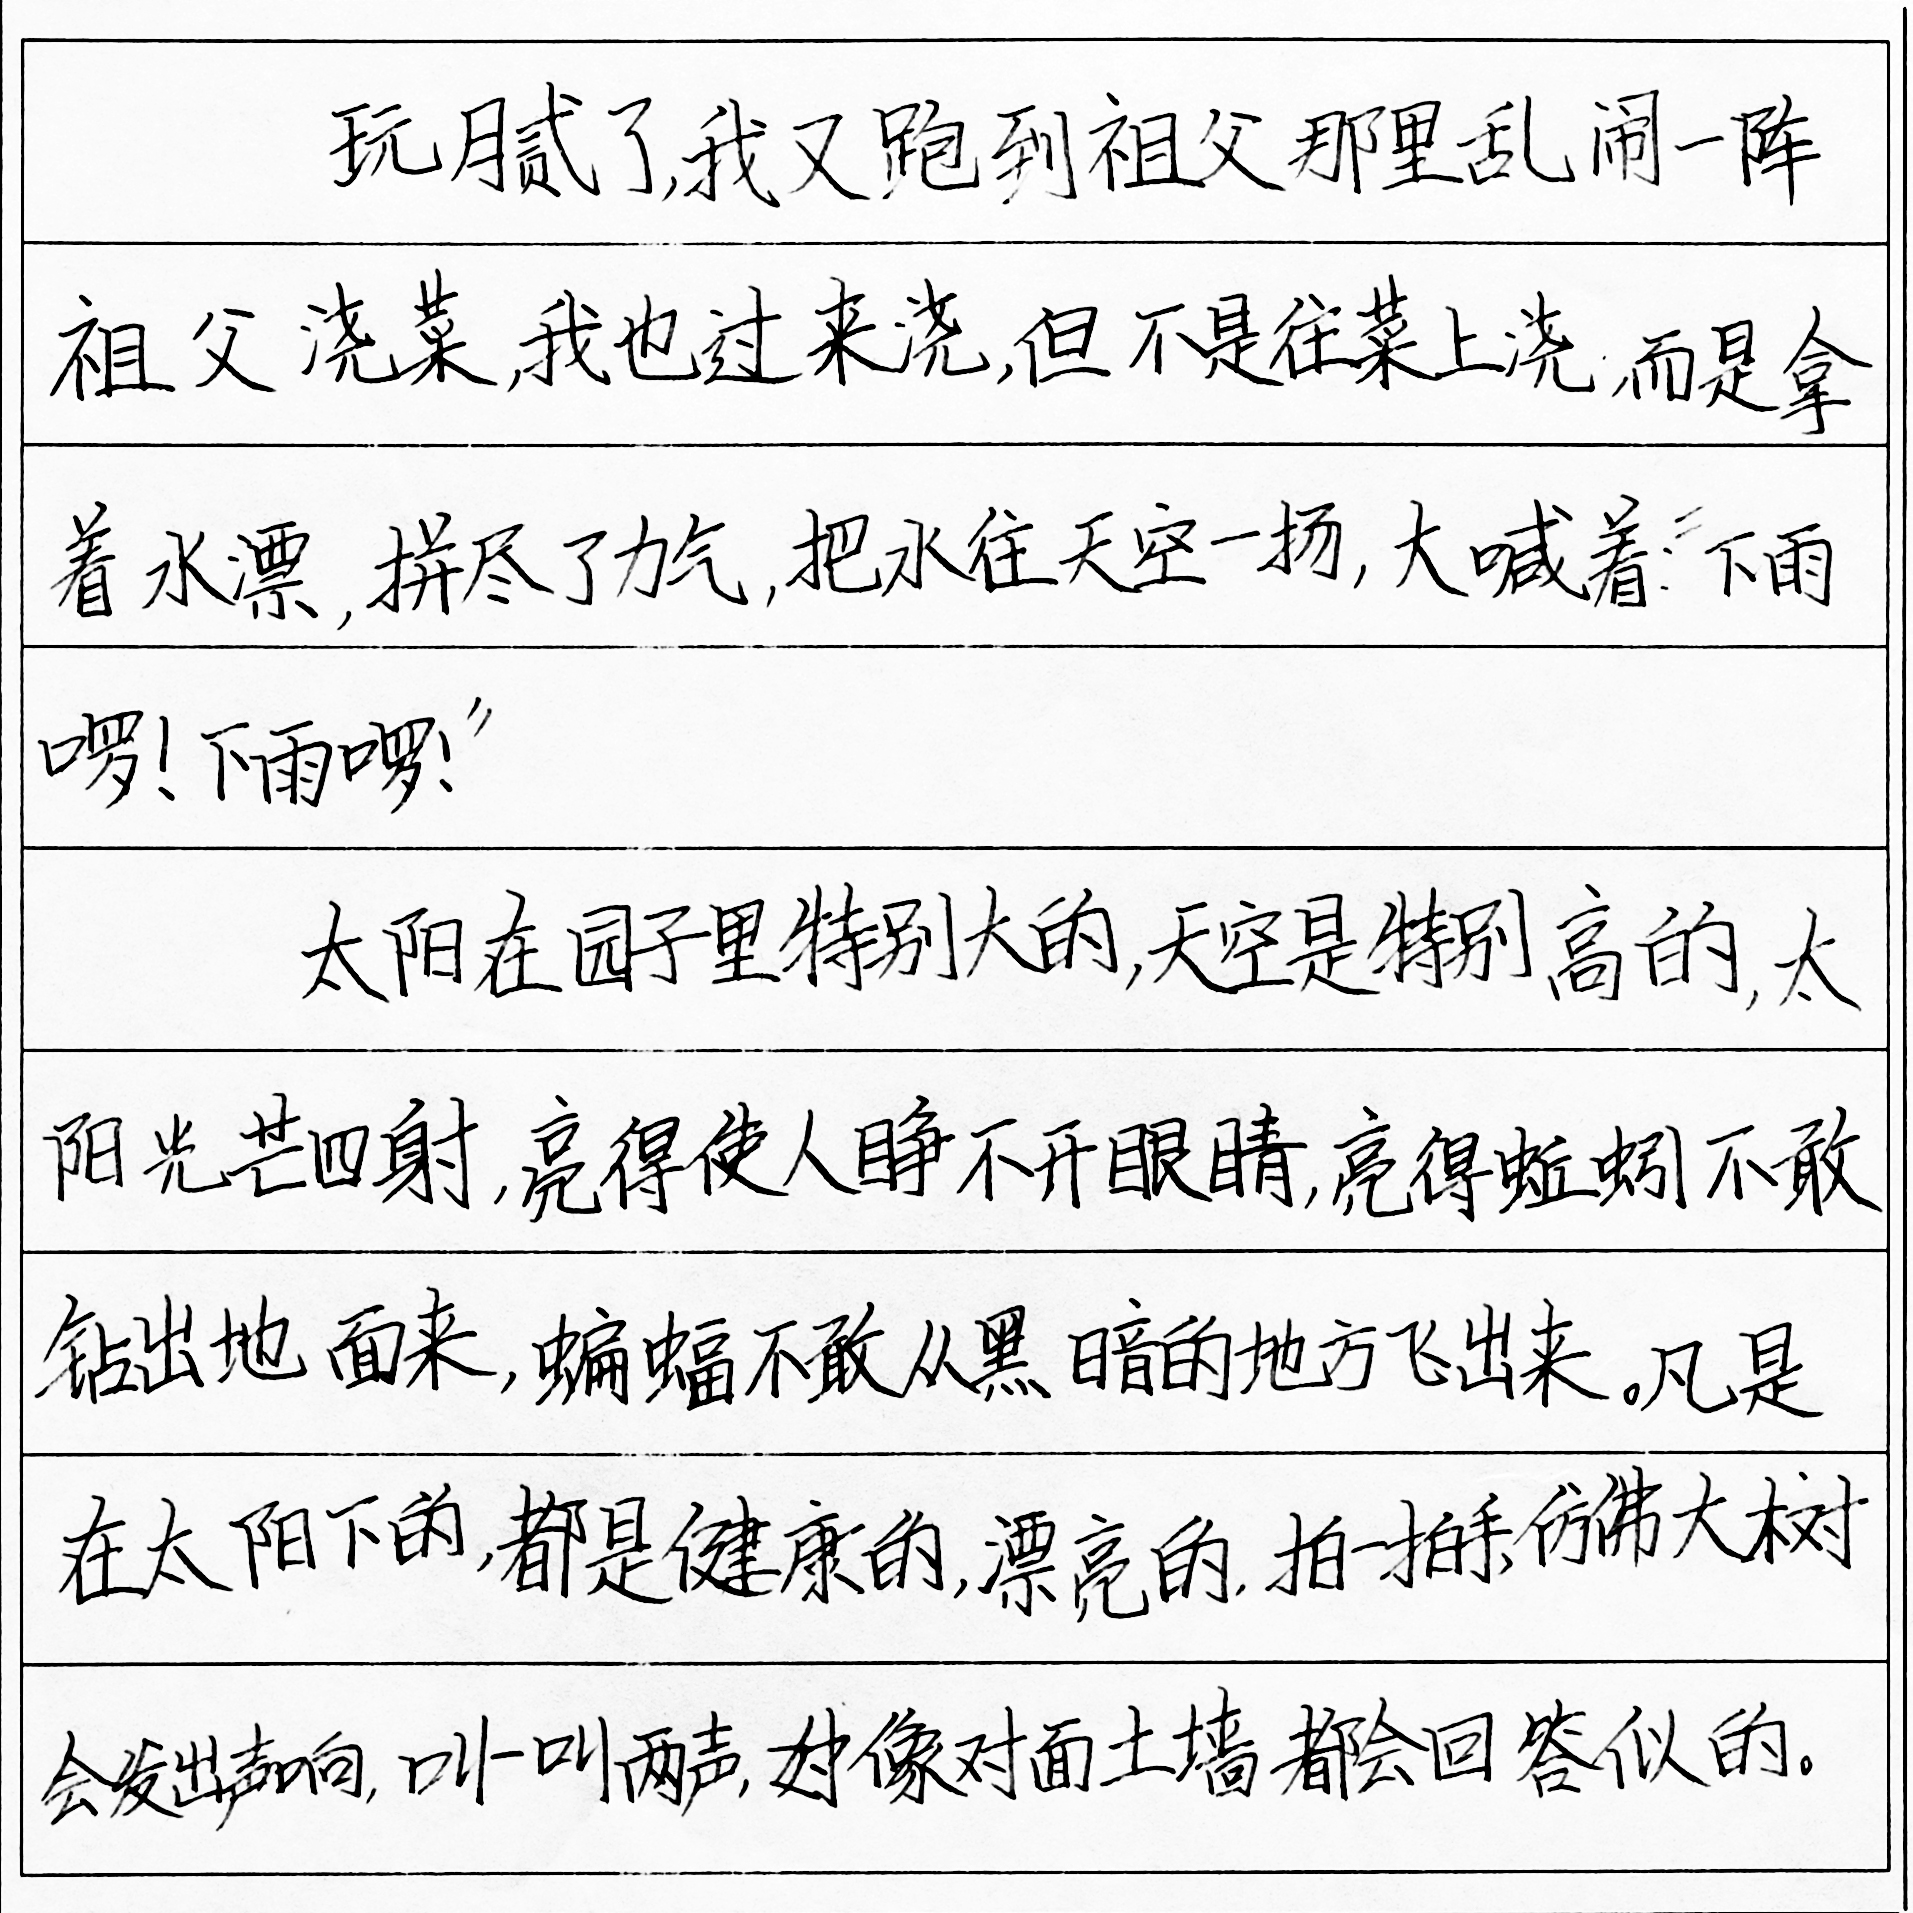 玩腻了,我又跑到祖父那里乱闹一阵
祖父浇菜,我也过来浇,但不是往菜上浇,而是拿
着水漂,拼尽了力气,把水往天空一扬,大喊着:“下雨
啰!下雨啰!”
太阳在园子里特别大的,天空是特别高的,太
阳光芒四射,亮得使人睁不开眼睛,亮得蚯蚓不敢
钻出地面来,蝙蝠不敢从黑暗的地方飞出来。凡是
在太阳下的,都是健康的,漂亮的.拍一拍手,仿佛大树
会发出声响,叫一叫两声,好像对面土墙都会回答似的。